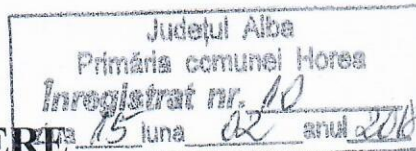 Județul Alba
Primăria comunei Horea
Înregistrat nr. 10
ziua 15 luna 02 anul 2016
ERE